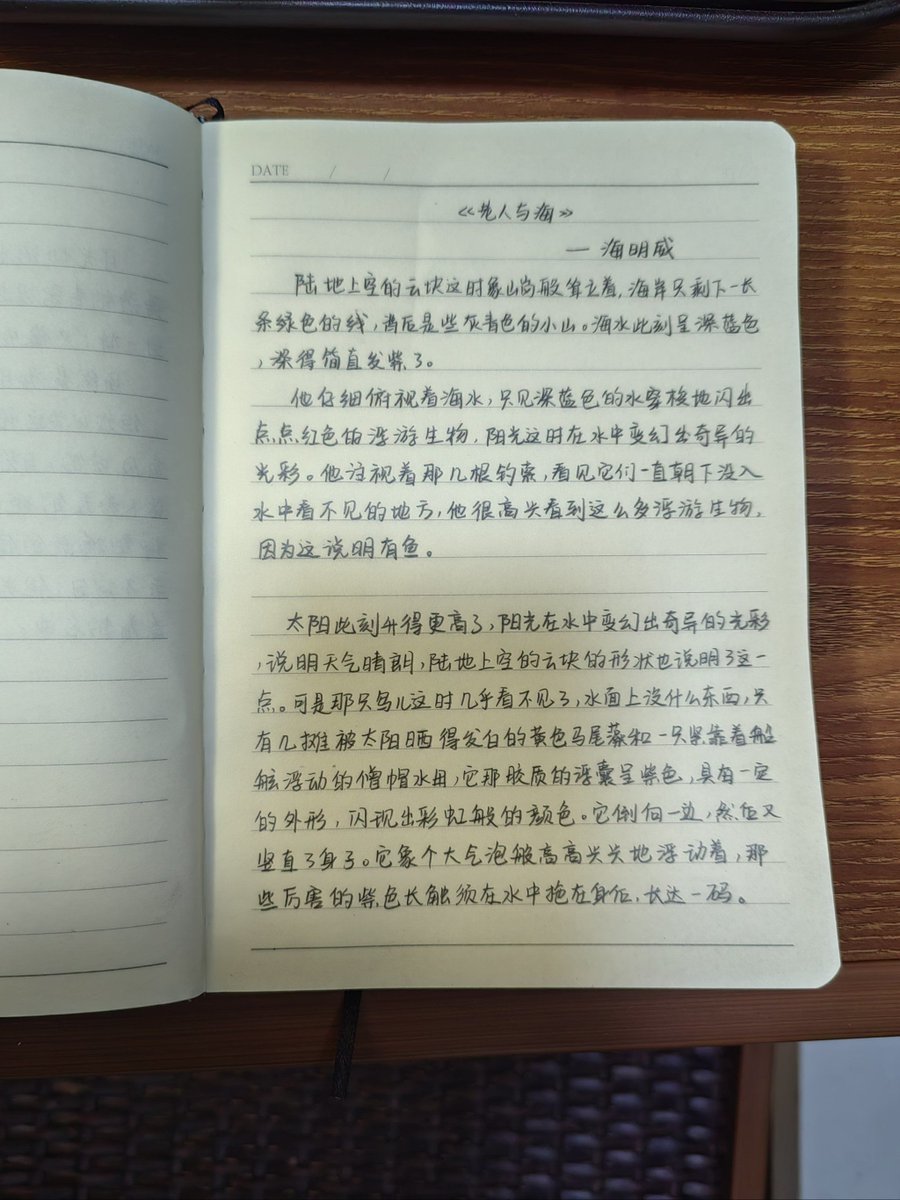 DATE / /
《老人与海》
— 海明威
陆地上空的云块这时象山岗般耸立着,海岸只剩下一长
条绿色的线,背后是些灰青色的小山。海水此刻呈深蓝色
,深得简直发紫了。
他仔细俯视着海水,只见深蓝色的水穿梭地闪出
点点红色的浮游生物,阳光这时在水中变幻出奇异的
光彩。他注视着那几根钓索,看见它们一直朝下没入
水中看不见的地方,他很高兴看到这么多浮游生物,
因为这说明有鱼。
太阳此刻升得更高了,阳光在水中变幻出奇异的光彩
,说明天气晴朗,陆地上空的云块的形状也说明了这一
点。可是那只鸟儿这时几乎看不见了,水面上没什么东西,只
有几摊被太阳晒得发白的黄色马尾藻和一只紧靠着船
舷浮动的僧帽水母,它那胶质的浮囊呈紫色,具有一定
的外形,闪现出彩虹般的颜色。它倒向一边,然后又
竖直了身子。它象个大气泡般高高兴兴地浮动着,那
些厉害的紫色长触须在水中拖在身后,长达一码。